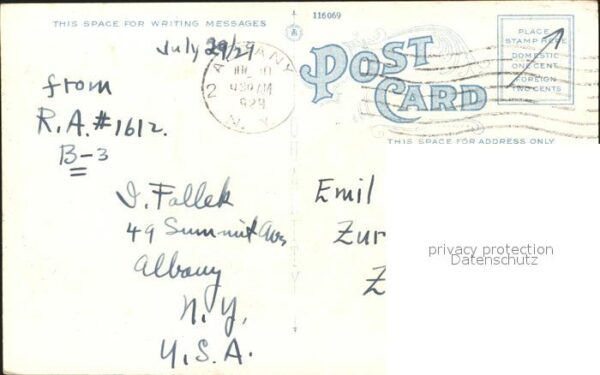 THIS SPACE FOR WRITING MESSAGES
116069
July 29/29
ALBANY
2
N.Y.
POST CARD
PLACE
STAMP HERE
DOMESTIC
ONE CENT
FOREIGN
TWO CENTS
THIS SPACE FOR ADDRESS ONLY
from
R.A. #1612.
B-3
I. Fallek
49 Summit Ave
Albany
N.Y.
U.S.A.
Emil
Zur
Z
privacy protection
Datenschutz